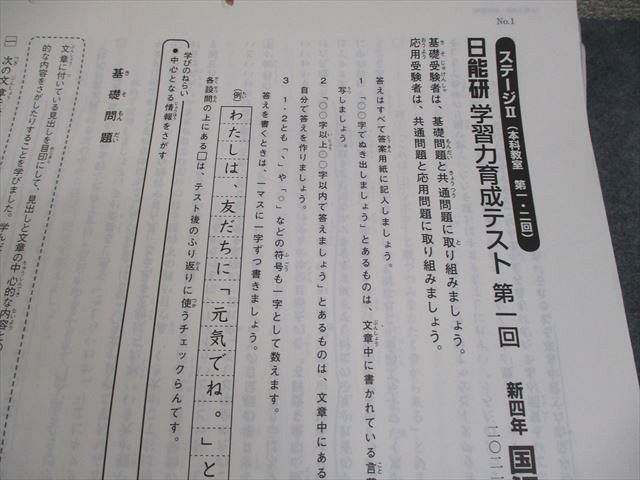 No.1
ステージⅡ（本科教室 第一・二回）
日能研 学習力育成テスト 第一回 新四年 国
基礎受験者は、基礎問題と共通問題に取り組みましょう。
応用受験者は、共通問題と応用問題に取り組みましょう。
答えはすべて答案用紙に記入しましょう。
1 「○○字でぬき出しましょう」とあるものは、文章中に書かれている言葉
写しましょう。
2 「○○字以上○○字以内で答えましょう」とあるものは、文章中にある
自分で答えを作りましょう。
3 1・2とも「、」や「。」などの符号も一字として数えます。
答えを書くときは、一マスに一字ずつ書きましょう。
例 わたしは、友だちに「元気でね。」と
各設問の上にある□は、テスト後のふり返りに使うチェックらんです。
学びのねらい
●中心となる情報をさがす
基礎問題
文章に付いている見出しを目印にして、見出しと文章の中心的な
的な内容をさがしたりすることを学びました。学んだ
一 次の文章